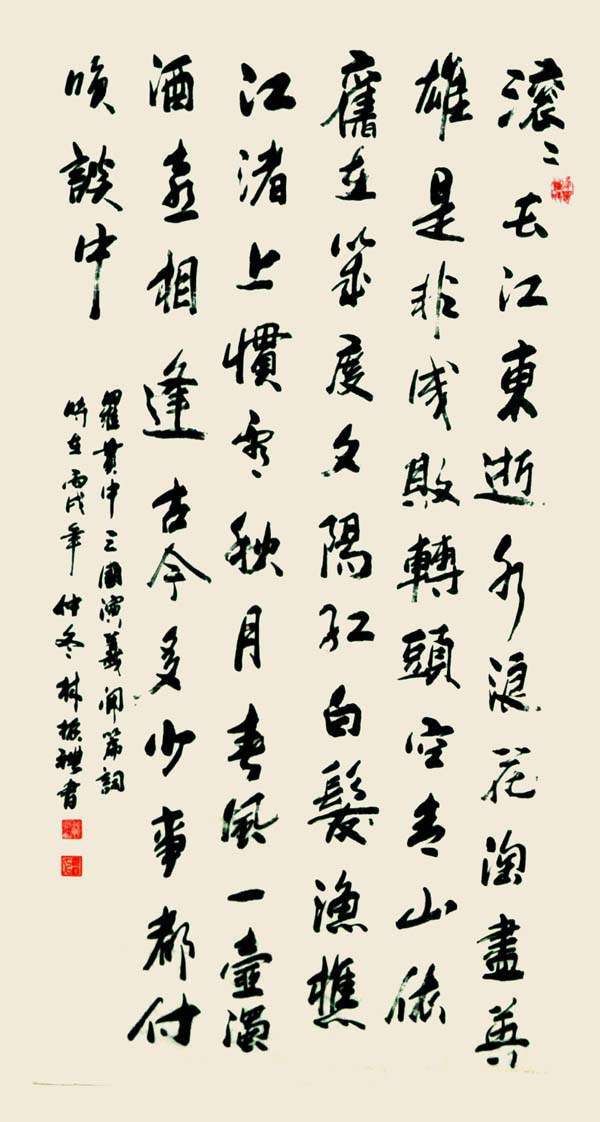 滚〻长江東逝水浪花淘盡英
雄是非成敗轉頭空青山依
舊在幾度夕陽紅白髮漁樵
江渚上慣看秋月春風一壺濁
酒喜相逢古今多少事都付
咲談中
羅貫中三國演義開篇詞
時在丙戌年仲冬林振禮書